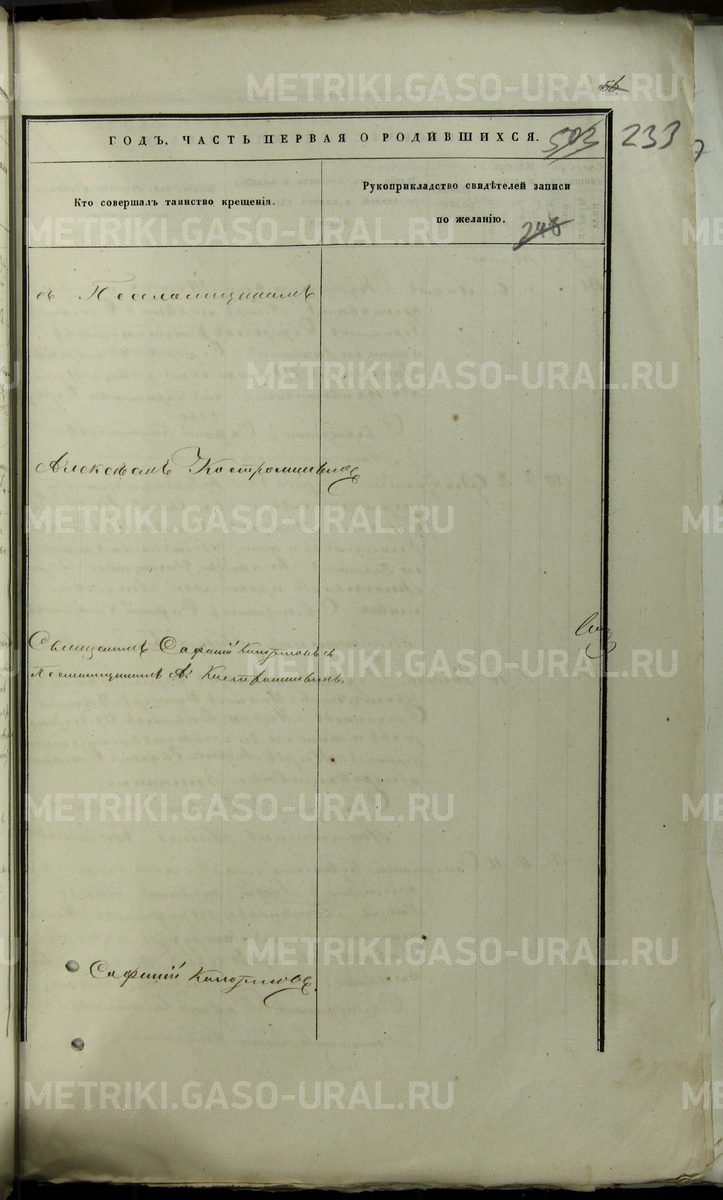 56
ГОДЪ, ЧАСТЬ ПЕРВАЯ О РОДИВШИХСЯ.
503 233
Кто совершалъ таинство крещенія.
Рукоприкладство свидѣтелей записи
по желанію.
248
съ Псаломщикомъ
Алексѣемъ Костроминымъ
Священникъ Сафоній съ
Псаломщикомъ А. Костроминымъ.
Сафоній
METRIKI.GASO-URAL.RU
METRIKI.GASO-URAL.RU
METRIKI.GASO-URAL.RU
METRIKI.GASO-URAL.RU
METRIKI.GASO-URAL.RU
METRIKI.GASO-URAL.RU
METRIKI.GASO-URAL.RU
METRIKI.GASO-URAL.RU